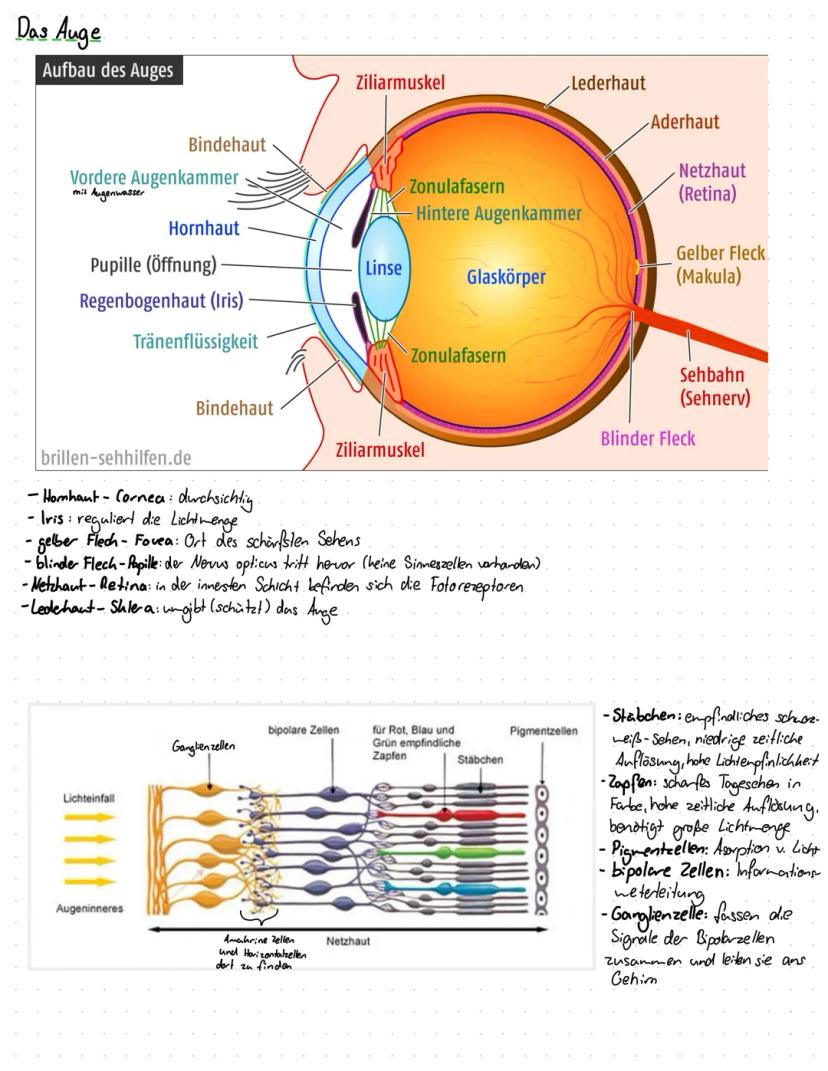 Das Auge
Aufbau des Auges
Ziliarmuskel
Lederhaut
Aderhaut
Bindehaut
Vordere Augenkammer
mit Augenwasser
Netzhaut
(Retina)
Zonulafasern
Hintere Augenkammer
Hornhaut
Gelber Fleck
(Makula)
Pupille (Öffnung)
Linse
Glaskörper
Regenbogenhaut (Iris)
Tränenflüssigkeit
Zonulafasern
Sehbahn
(Sehnerv)
Bindehaut
Blinder Fleck
Ziliarmuskel
brillen-sehhilfen.de
- Hornhaut - Cornea: durchsichtig
- Iris: reguliert die Lichtmenge
- gelber Fleck - Fovea: Ort des schärfsten Sehens
- blinder Fleck - Papille: der Nervus opticus tritt hervor (keine Sinneszellen vorhanden)
- Netzhaut - Retina: in der innersten Schicht befinden sich die Fotorezeptoren
- Lederhaut - Sklera: umgibt (schützt) das Auge
Ganglienzellen
bipolare Zellen
für Rot, Blau und
Grün empfindliche
Zapfen
Stäbchen
Pigmentzellen
Lichteinfall
Augeninneres
Amakrine Zellen
und Horizontalzellen
dort zu finden
Netzhaut
- Stäbchen: empfindliches schwarz-
weiß-Sehen, niedrige zeitliche
Auflösung, hohe Lichtempfinlichkeit
- Zapfen: scharfes Tagesehen in
Farbe, hohe zeitliche Auflösung,
benötigt große Lichtmenge
- Pigmentzellen: Asorption v. Licht
- bipolare Zellen: Informations-
weterleitung
- Ganglienzelle: fassen die
Signale der Bipolarzellen
zusammen und leiten sie ans
Gehirn